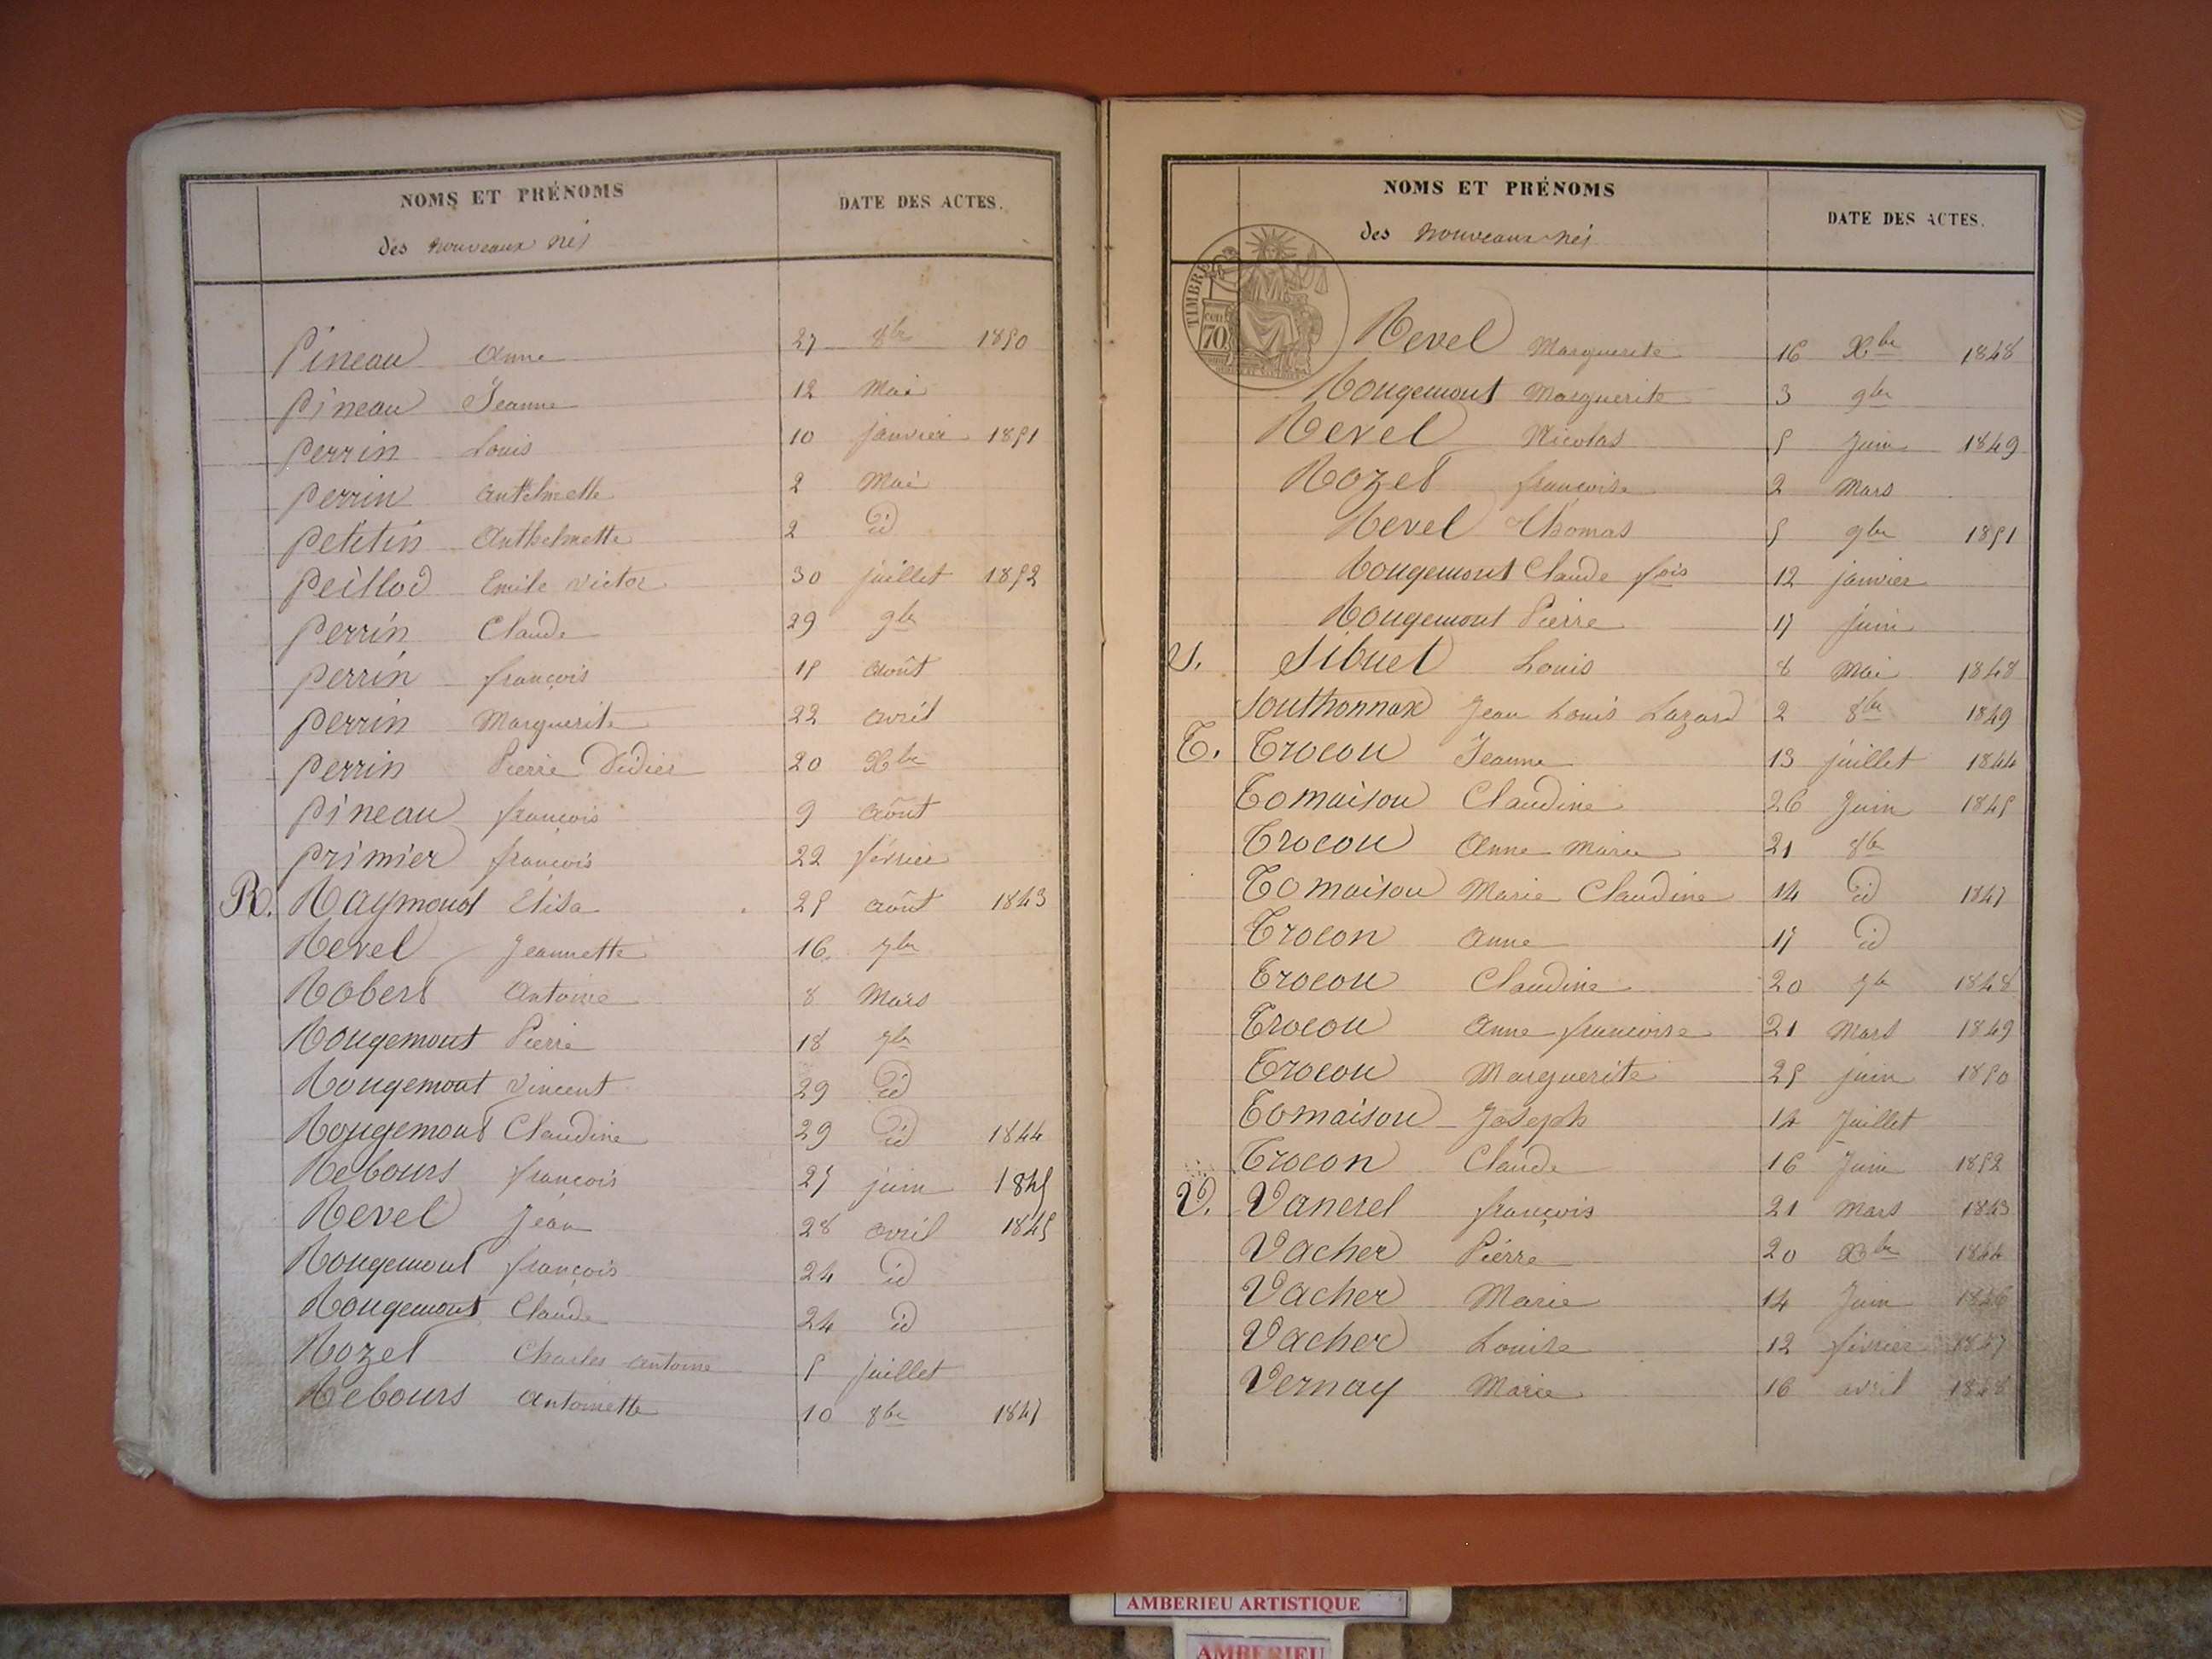 NOMS ET PRÉNOMS DATE DES ACTES.
des nouveaux nés
Pineau Anne 27 8bre 1850
Pineau Jeanne 12 Mai
Perrin Louis 10 janvier 1851
Perrin Anthelmette 2 Mai
Petitin Anthelmette 2 id
Peillod Emile Victor 30 juillet 1852
Perrin Claude 29 9bre
Perrin françois 15 août
Perrin Marguerite 22 avril
Perrin Pierre Didier 20 Xbre
Pineau françois 9 août
Primier françois 22 février
R. Raymond Elisa 25 août 1843
Revel Jeannette 16 7bre
Robert Antoine 8 Mars
Rougemont Pierre 18 7bre
Rougemont Vincent 29 id
Rougemont Claudine 29 id 1844
Rebours françois 27 juin 1845
Revel Jean 28 avril 1845
Rougemont françois 24 id
Rougemont Claude 24 id
Rozet Charles Antoine 5 juillet
Rebours Antoinette 10 8bre 1847
NOMS ET PRÉNOMS DATE DES ACTES.
des nouveaux nés
TIMBRE
70
Revel Marguerite 16 Xbre 1848
Rougemont Marguerite 3 9bre
Revel Nicolas 5 Juin 1849
Rozet françoise 2 Mars
Revel Thomas 5 9bre 1851
Rougemont Claude fois 12 janvier
Rougemont Pierre 17 juin
S. Sibuet Louis 8 Mai 1848
Southonnax Jean Louis Lazard 2 8bre 1849
T. Trocon Jeanne 13 juillet 1844
Tomaison Claudine 26 Juin 1845
Trocon Anne Marie 21 8bre
Tomaison Marie Claudine 14 id 1847
Trocon Anne 17 id
Trocon Claudine 20 7bre 1848
Trocon Anne francoise 21 Mars 1849
Trocon Marguerite 25 juin 1850
Tomaison Joseph 14 Juillet
Trocon Claude 16 Juin 1852
V. Vanerel françois 21 Mars 1843
Vacher Pierre 20 Xbre 1844
Vacher Marie 14 Juin 1846
Vacher Louise 12 février 1847
Vernay Marie 16 avril 1848
AMBERIEU ARTISTIQUE
AMBERIEU